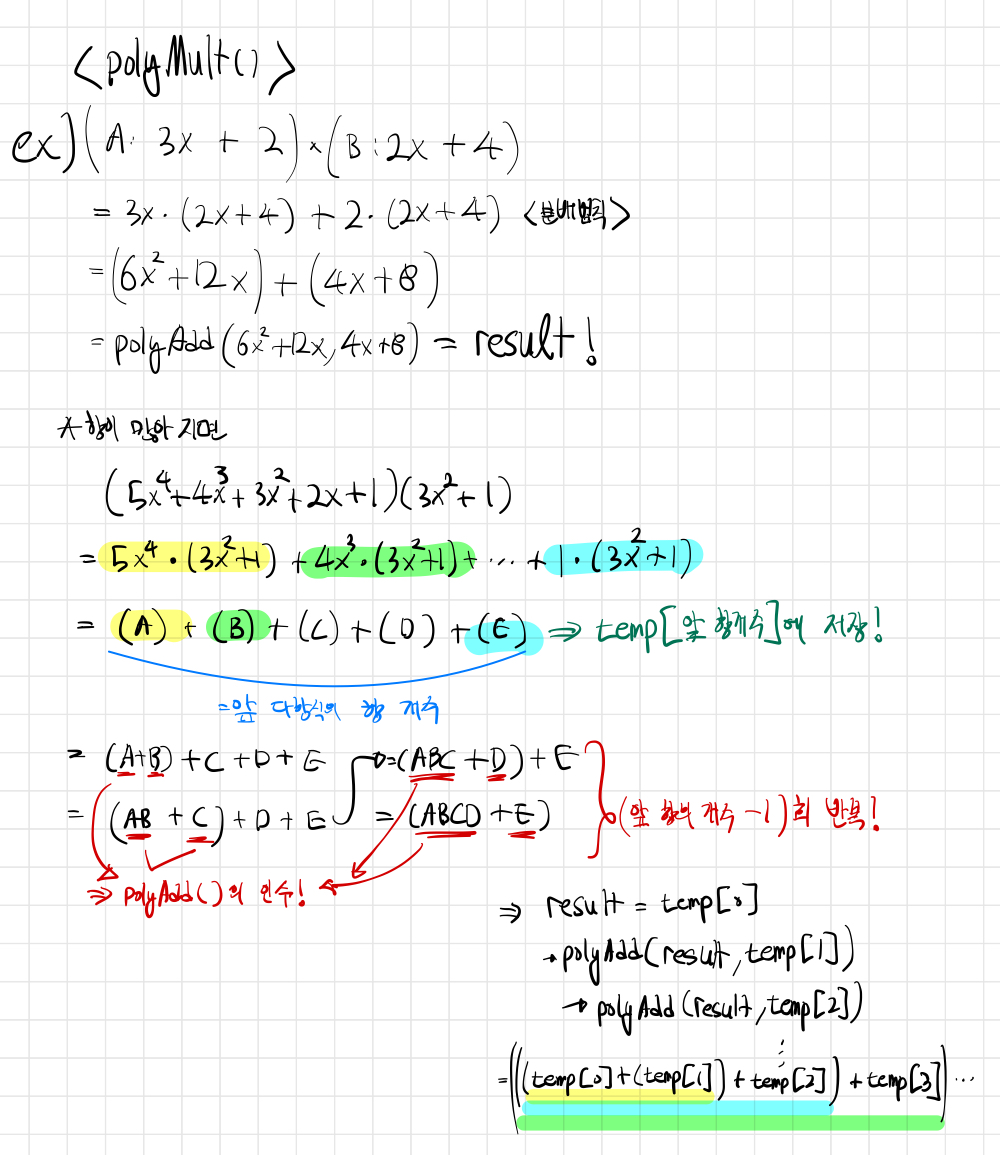 <polyMult()>
ex) (A: 3x + 2) × (B: 2x + 4)
= 3x · (2x+4) + 2 · (2x+4) <분배법칙>
= (6x²+12x) + (4x+8)
= polyAdd(6x²+12x, 4x+8) = result!
* 항이 많아지면
(5x⁴+4x³+3x²+2x+1)(3x²+1)
= 5x⁴ · (3x²+1) + 4x³ · (3x²+1) + ... + 1 · (3x²+1)
= (A) + (B) + (C) + (D) + (E) ⇒ temp[앞 항개수]에 저장!
=앞 다항식의 항 개수
= (A+B) + C + D + E
= (AB + C) + D + E
→=(ABC + D) + E
= (ABCD + E)
(앞 항의 개수 -1)회 반복!
⇒ polyAdd()의 인수!
⇒ result = temp[0]
→ polyAdd(result, temp[1])
→ polyAdd(result, temp[2])
⋮
= (((temp[0]+(temp[1]) + temp[2]) + temp[3]) ...